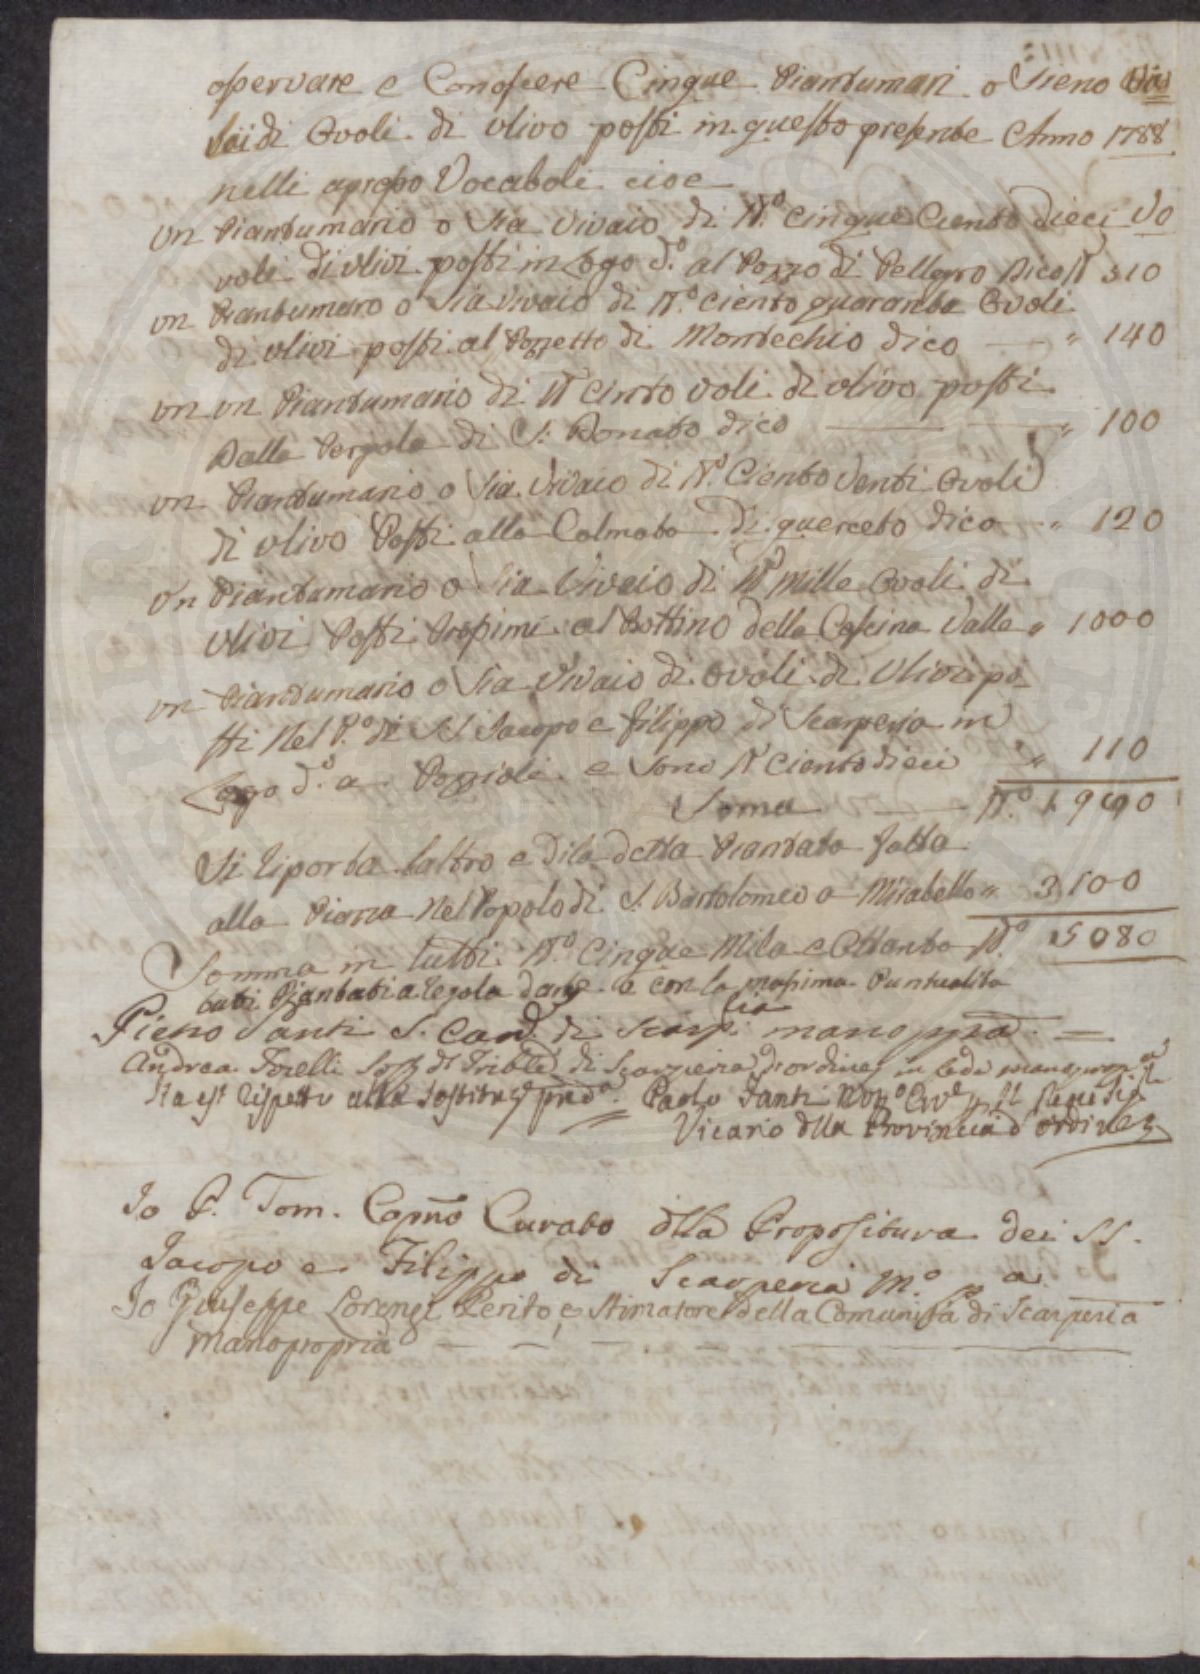 osservare e Conoscere Cinque Piantumari o Sieno
di Ovoli di Ulivo posti in questo presente Anno 1788
nelli apresso Vocaboli cioe
Un Piantumario o Sia Vivaio di N.º Cinque Cento dieci Vo
voli di Ulivi posti in Logo d.º al Pozzo di Pellegro Dico N 510
un Piantumaro o Sia Vivaio di N.º Ciento quaranta Ovoli
di Ulivi posti al Pozzetto di Montechio dico — " 140
un un Piantumario di N Cinto Voli di Ulivo posti
Dalla Pergola di S. Donato dico — " 100
un Piantumario o Sia Vivaio di N.º Ciento Venti Ovoli
di Ulivo Posti alla Colmata di querceto dico — " 120
Un Piantumario o Sia Vivaio di Nº Mille Ovoli di
Ulivi Posti Prosimi al Bottino della Cascina Valle " 1000
un Piantumario o Sia Vivaio di Ovoli di Ulivi po
sti Nel P.º di S.S. Jacopo e Filippo di Scarperia in
Logo d.º a Poggiole e Sono N Ciento dieci " 110
Soma — N.º 1980
Si Riporta laltro e di la detta Piantata fatta
alla Piazza Nel Popolo di S. Bartolomeo a Mirabello " 3100
Somma in tutti N.º Cinque Mila e Ottanta N.º 5080
tutti Piantati a regola d'arte e con la masima Puntualita
Pieno Santi S. Canc. di Scarp.ria mano pp.a —
Andrea Torelli di Scarperia d'ordine in fede mano
Sta est rispetto alla Paolo Santi
Vicario dlla Provincia d'ordine
Io P. Tom. Capnõ Curato dlla Propositura dei SS.
Jacopo e Filippo di Scarperia M.º p.a
Io Giuseppe Lorenzi Perito e Stimatore della Comunità di Scarperia
manopropria — — — —